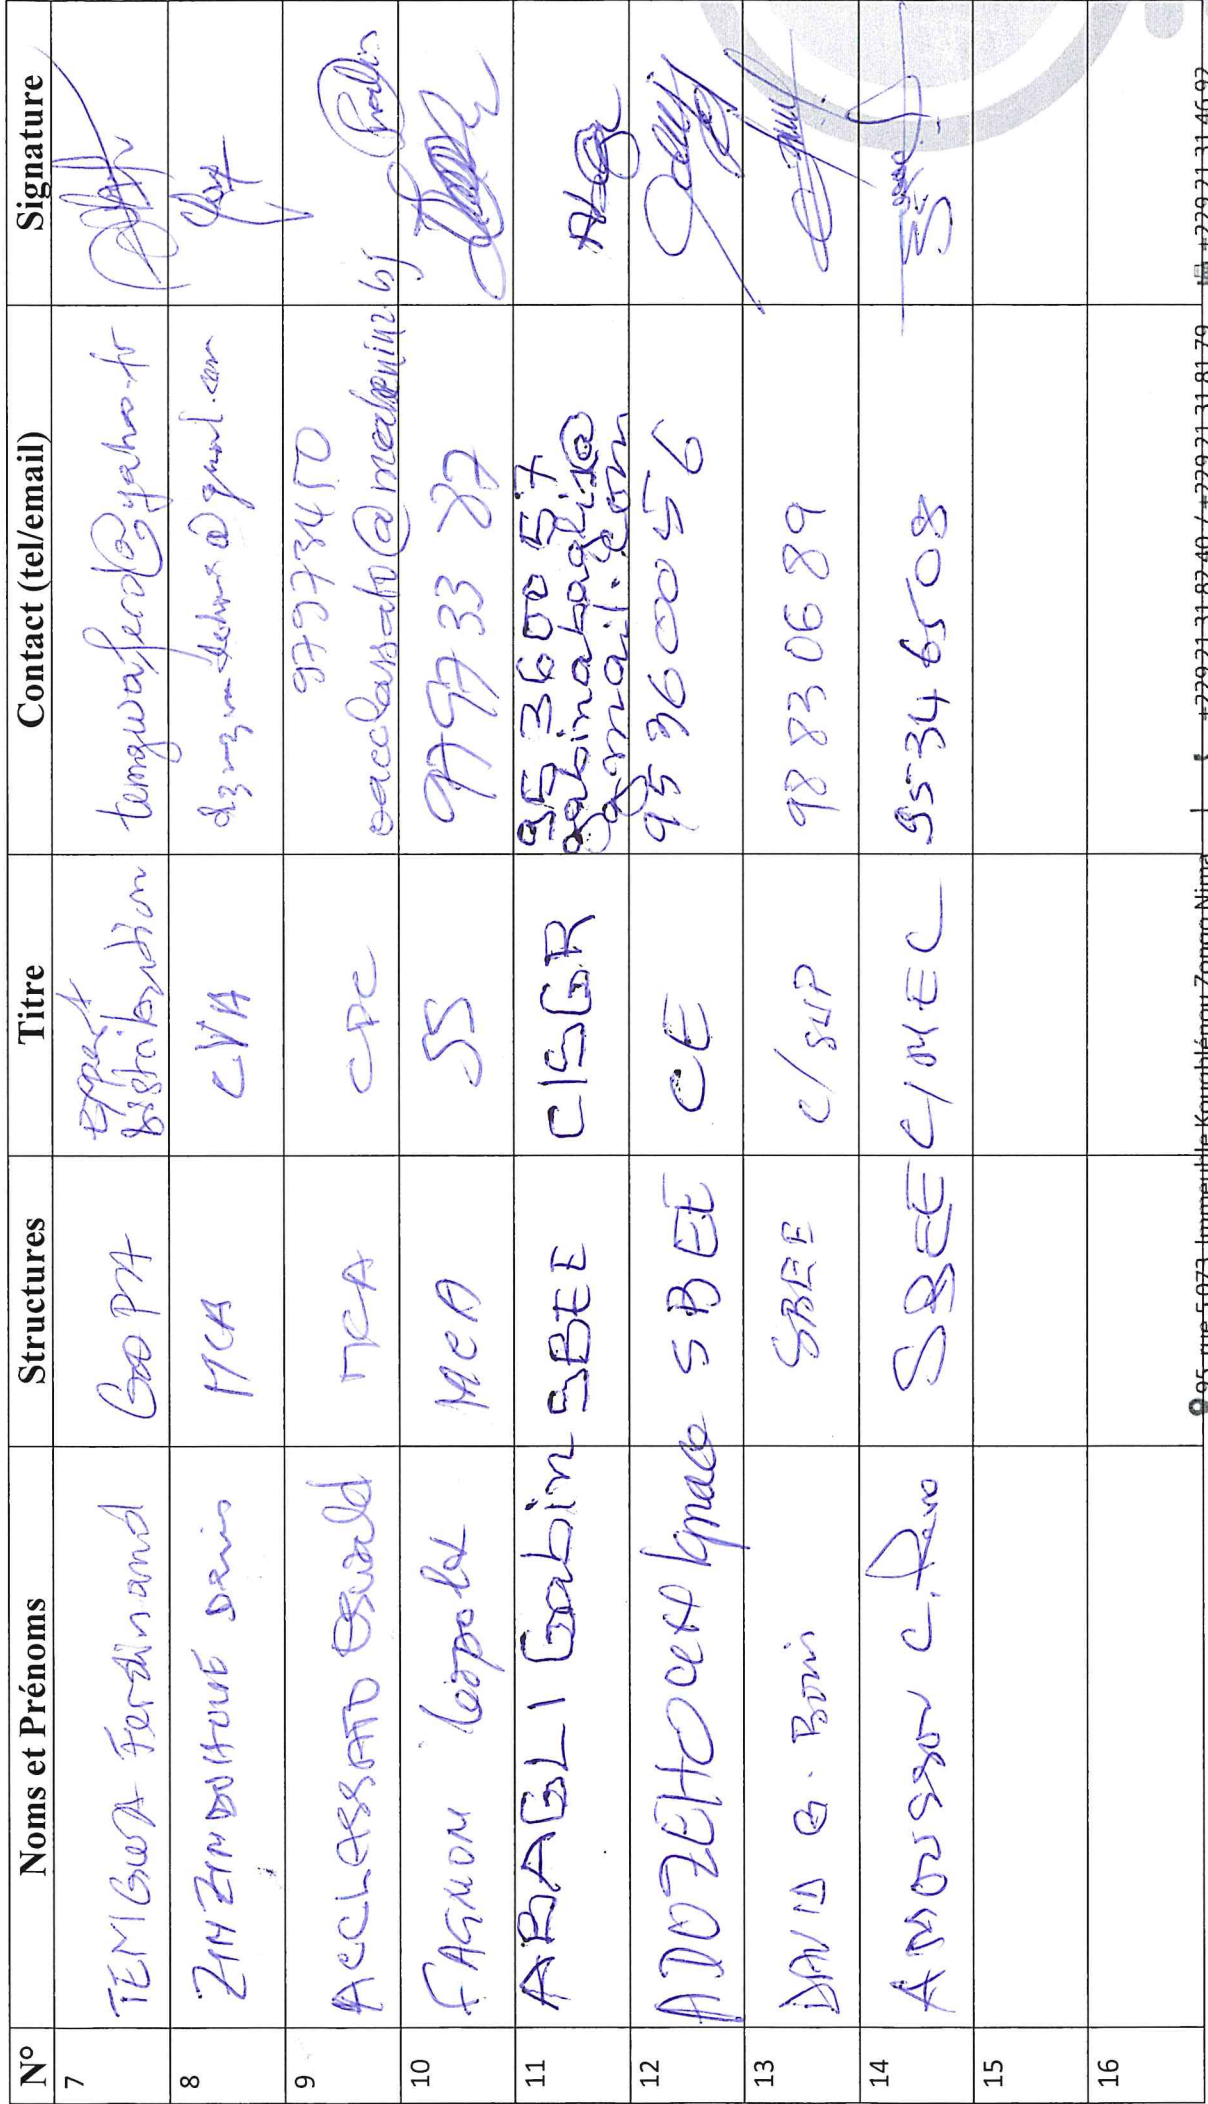 N° Noms et Prénoms Structures Titre Contact (tel/email) Signature
7 TEMGWA Ferdinand GOPA Expert Distribution temgwaferd@yahoo.fr
8 ZINZINDOHOUE Denis MCA CVA
9 ACCLASSATO Oswald MCA CPC 97973450
oacclassato@mcabenin2.bj
10 FAGNON Léopold MCA SS 97 97 33 87
11 ABAGLI Gabin SBEE C/SGR 95 36 00 57
gabinabagli@
gmail.com
12 ADOZEHOCAH Ignace SBEE CE 95 36 00 56
13 DAVID G. Boris SBEE C/SUP 98 83 06 89
14 AMOUSSOU C. SBEE C/MEC 95 34 65 08
15
16
95 rue 5.073 Immeuble Kougblénou Zongo Nima | +229 21 31 82 40 / +229 21 31 81 79 +229 21 31 46 92